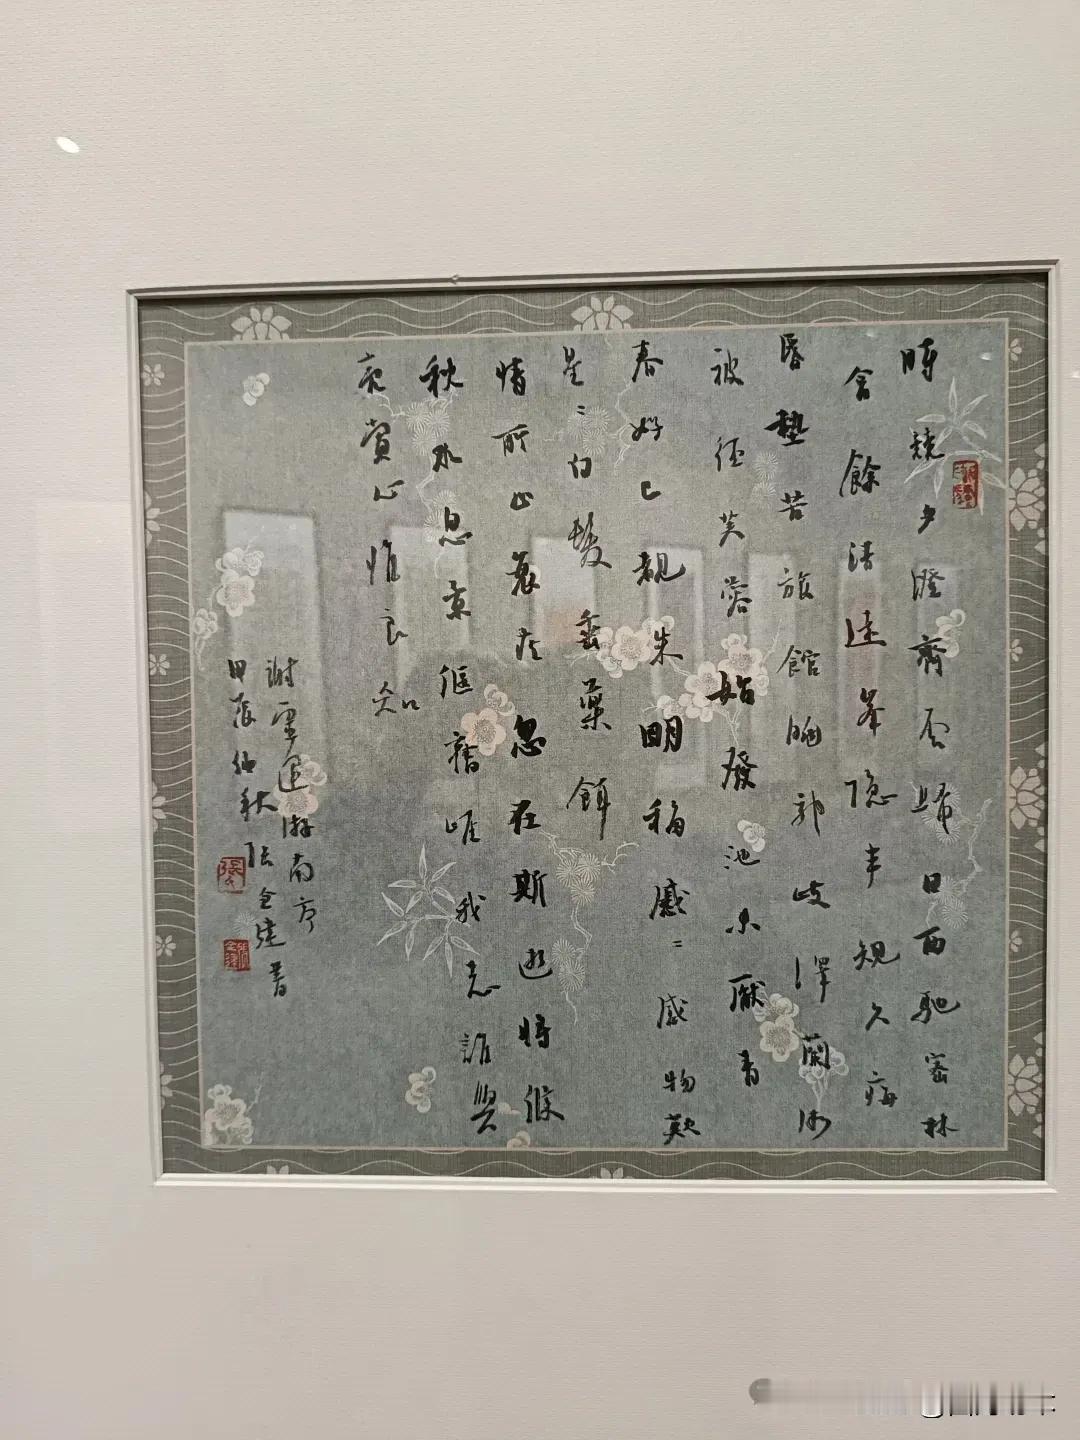 時竟夕澄霽雲歸日西馳密林
含餘清遠峯隐半規久痗
昏墊苦旅館眺郊歧澤蘭渐
被徑芙蓉始發池未厭青
春好已覩朱明移慼〻感物歎
星〻白髮垂藥餌
情所止衰疾忽在斯逝將候
秋水息景偃舊崖我志誰與
亮賞心惟良知
謝靈運游南亭
甲辰仲秋张全建書